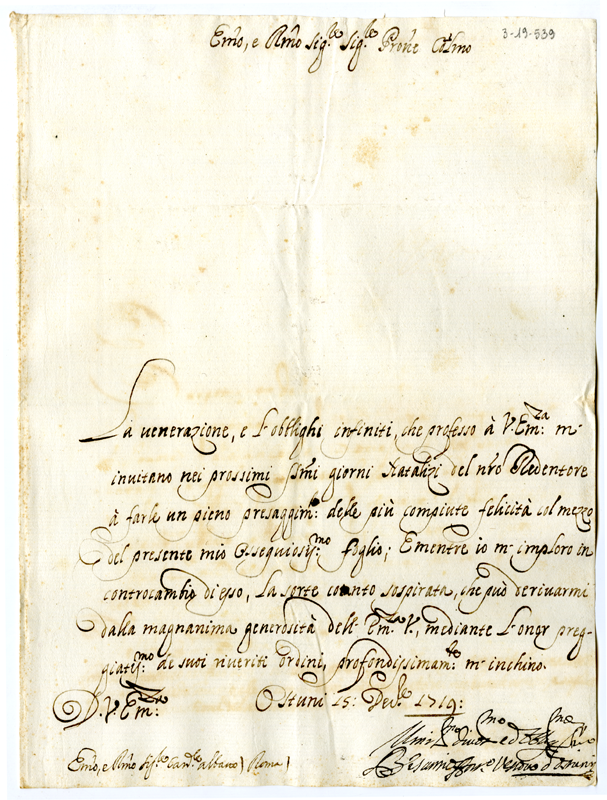 Em̃o, e Rm̃o Sig.re Sig.re Prõne Col̃mo
3-19-539
La venerazione, e l'obblighi infiniti, che professo à V. Em.za m'
invitano nei prossimi SSm̃i giorni Natalizi del nr̃o Redentore
à farle un pieno presaggim.to delle più compiute felicità col mezzo
del presente mio Ossequiosiss.mo foglio; E mentre io m'imploro in
controcambio di esso, la sorte cotanto sospirata, che può derivarmi
dalla magnanima generosità dell'Em.za V., mediante l'onor preg-
giatis.mo de suoi riveriti ordini, profondissimam.te m'inchino.
D. V. Em.za: Ostuni 15: Decb.re 1719:
Em̃o, e Rm̃o Sig.re Card.le Albano (Roma)
Umil.mo divot.mo ed obblig.mo
Vescovo d'Ostuni